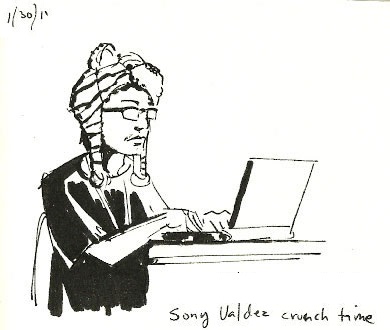 1/30/11
Sony Valdez crunch time